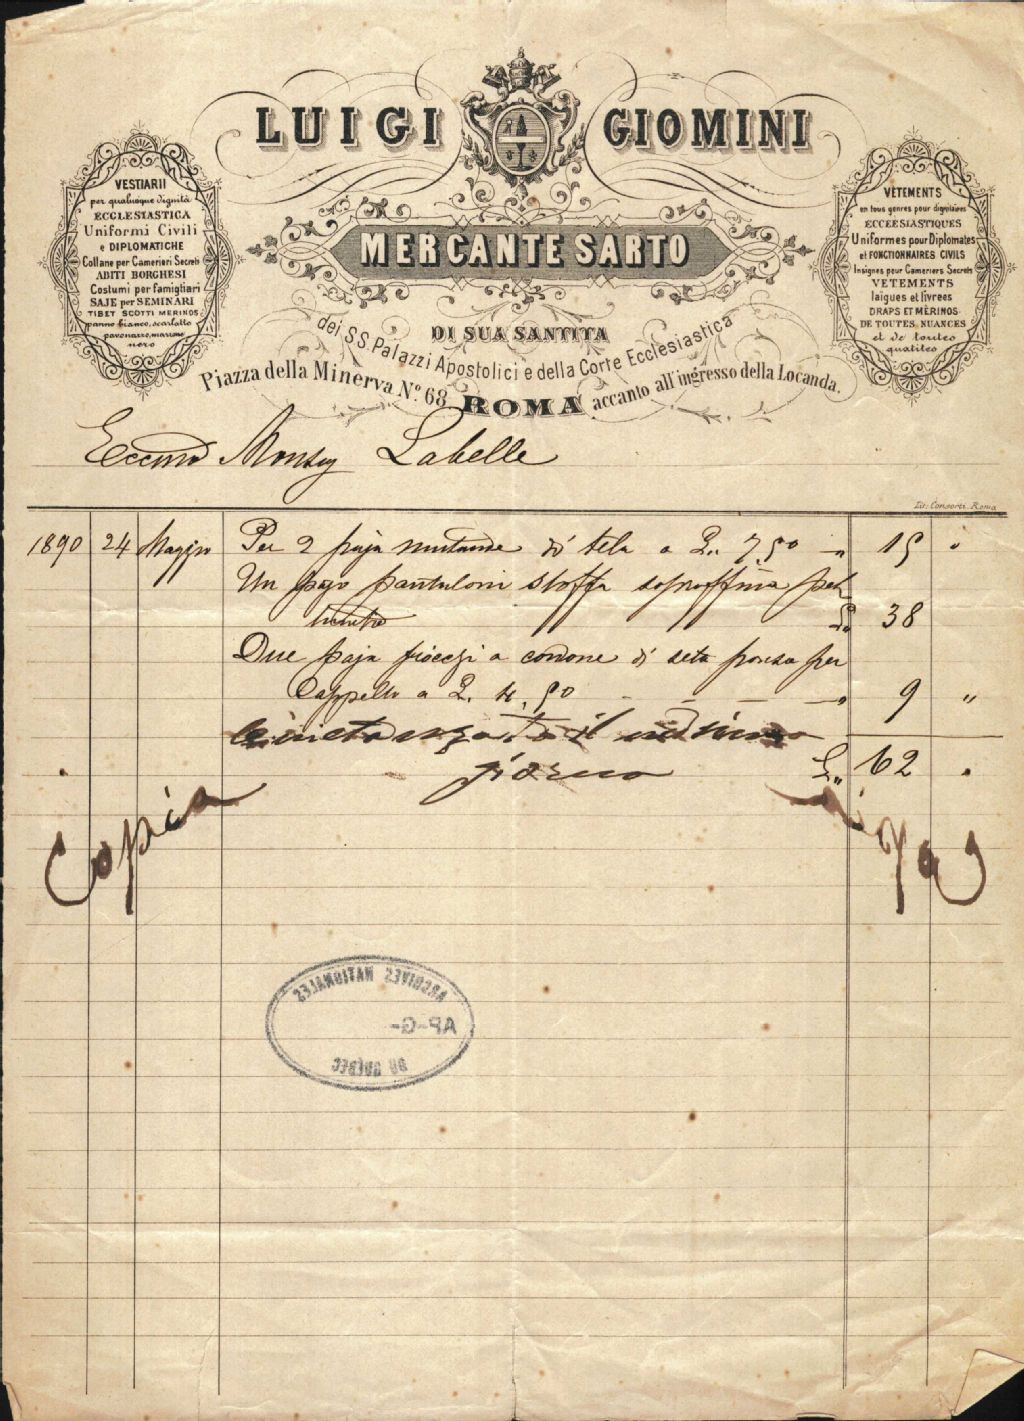 LUIGI GIOMINI
MERCANTE SARTO
DI SUA SANTITA
dei SS. Palazzi Apostolici e della Corte Ecclesiastica
Piazza della Minerva Nº 68 ROMA accanto all'ingresso della Locanda.
VESTIARII
per qualunque dignità
ECCLESIASTICA
Uniformi Civili
e DIPLOMATICHE
Collane per Camerieri Secreti
ABITI BORGHESI
Costumi per famigliari
SAJE per SEMINARI
TIBET SCOTTI MERINOS
panno bianco, scarlatto
pavonazzo, marrone
nero
VÊTEMENTS
en tous genres pour dignitaires
ECCEESIASTIQUES
Uniformes pour Diplomates
et FONCTIONNAIRES CIVILS
Insignes pour Cameriers Secrets
VETEMENTS
laigues et livrees
DRAPS ET MÈRINOS
DE TOUTES NUANCES
et de toutes
qualites
Eccmo Monsg Labelle
Lit. Consorti. Roma
1890 24 Maggio Per 2 paja mutande di tela a L. 7,50 " 15 "
Un pajo pantaloni stoffa sopraffina
L. 38
Due paja fiocchi a cordone di seta per
Cappello a L. 4,50 - - - " 9 "
il
giorno L. 62
Copia
ARCHIVES NATIONALES
AP-G-
DU QUÉBEC